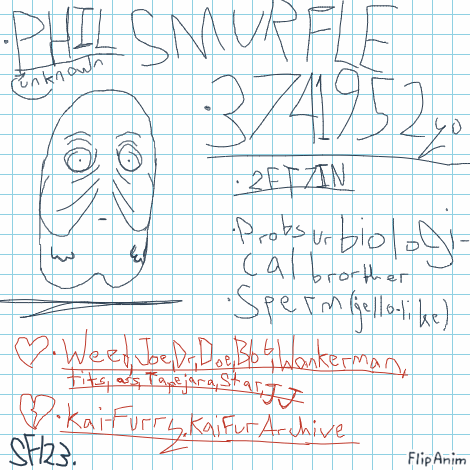 ·PHIL SMURFLE
unknown
·3741952yo
·2FT7IN
·Probs ur biologi-
cal brorther
·Sperm (jello-like)
·Weed, Joe, Dr, Doe, Bob, Wankerman,
tits, ass, Tapejara, Star, JJ
·Kai-Furry, KaiFurArchive
SFH23.
FlipAnim